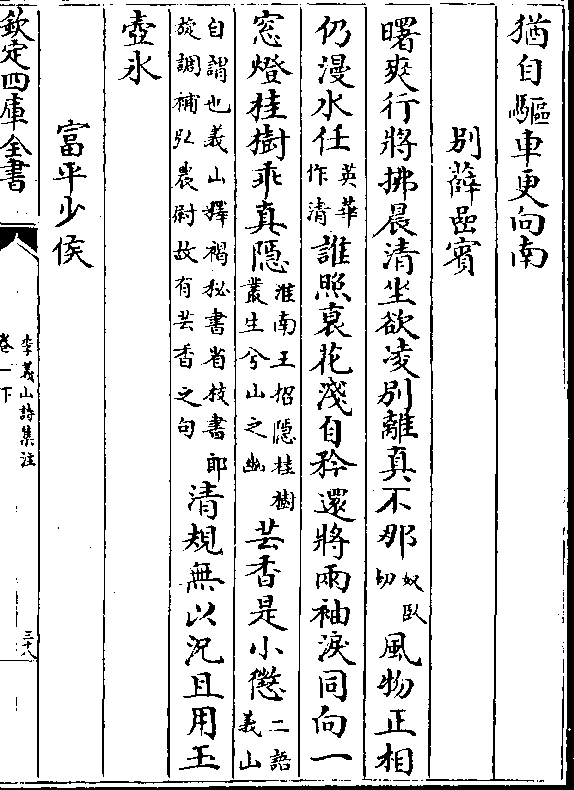 猶自驅車更向南
別薛嵒賓
曙爽行將拂晨清坐欲凌別離真不那奴臥切風物正相
仍漫水任英華作清誰照衰花淺自矜還將兩袖淚同向一
窓燈桂樹乖真隱淮南王招隱桂樹叢生兮山之幽芸香是小懲二語義山
自謂也義山釋褐秘書省校書郎旋調補弘農尉故有芸香之句清規無以況且用玉
壺氷
富平少侯
欽定四庫全書
李義山詩集注
卷一下
三十八